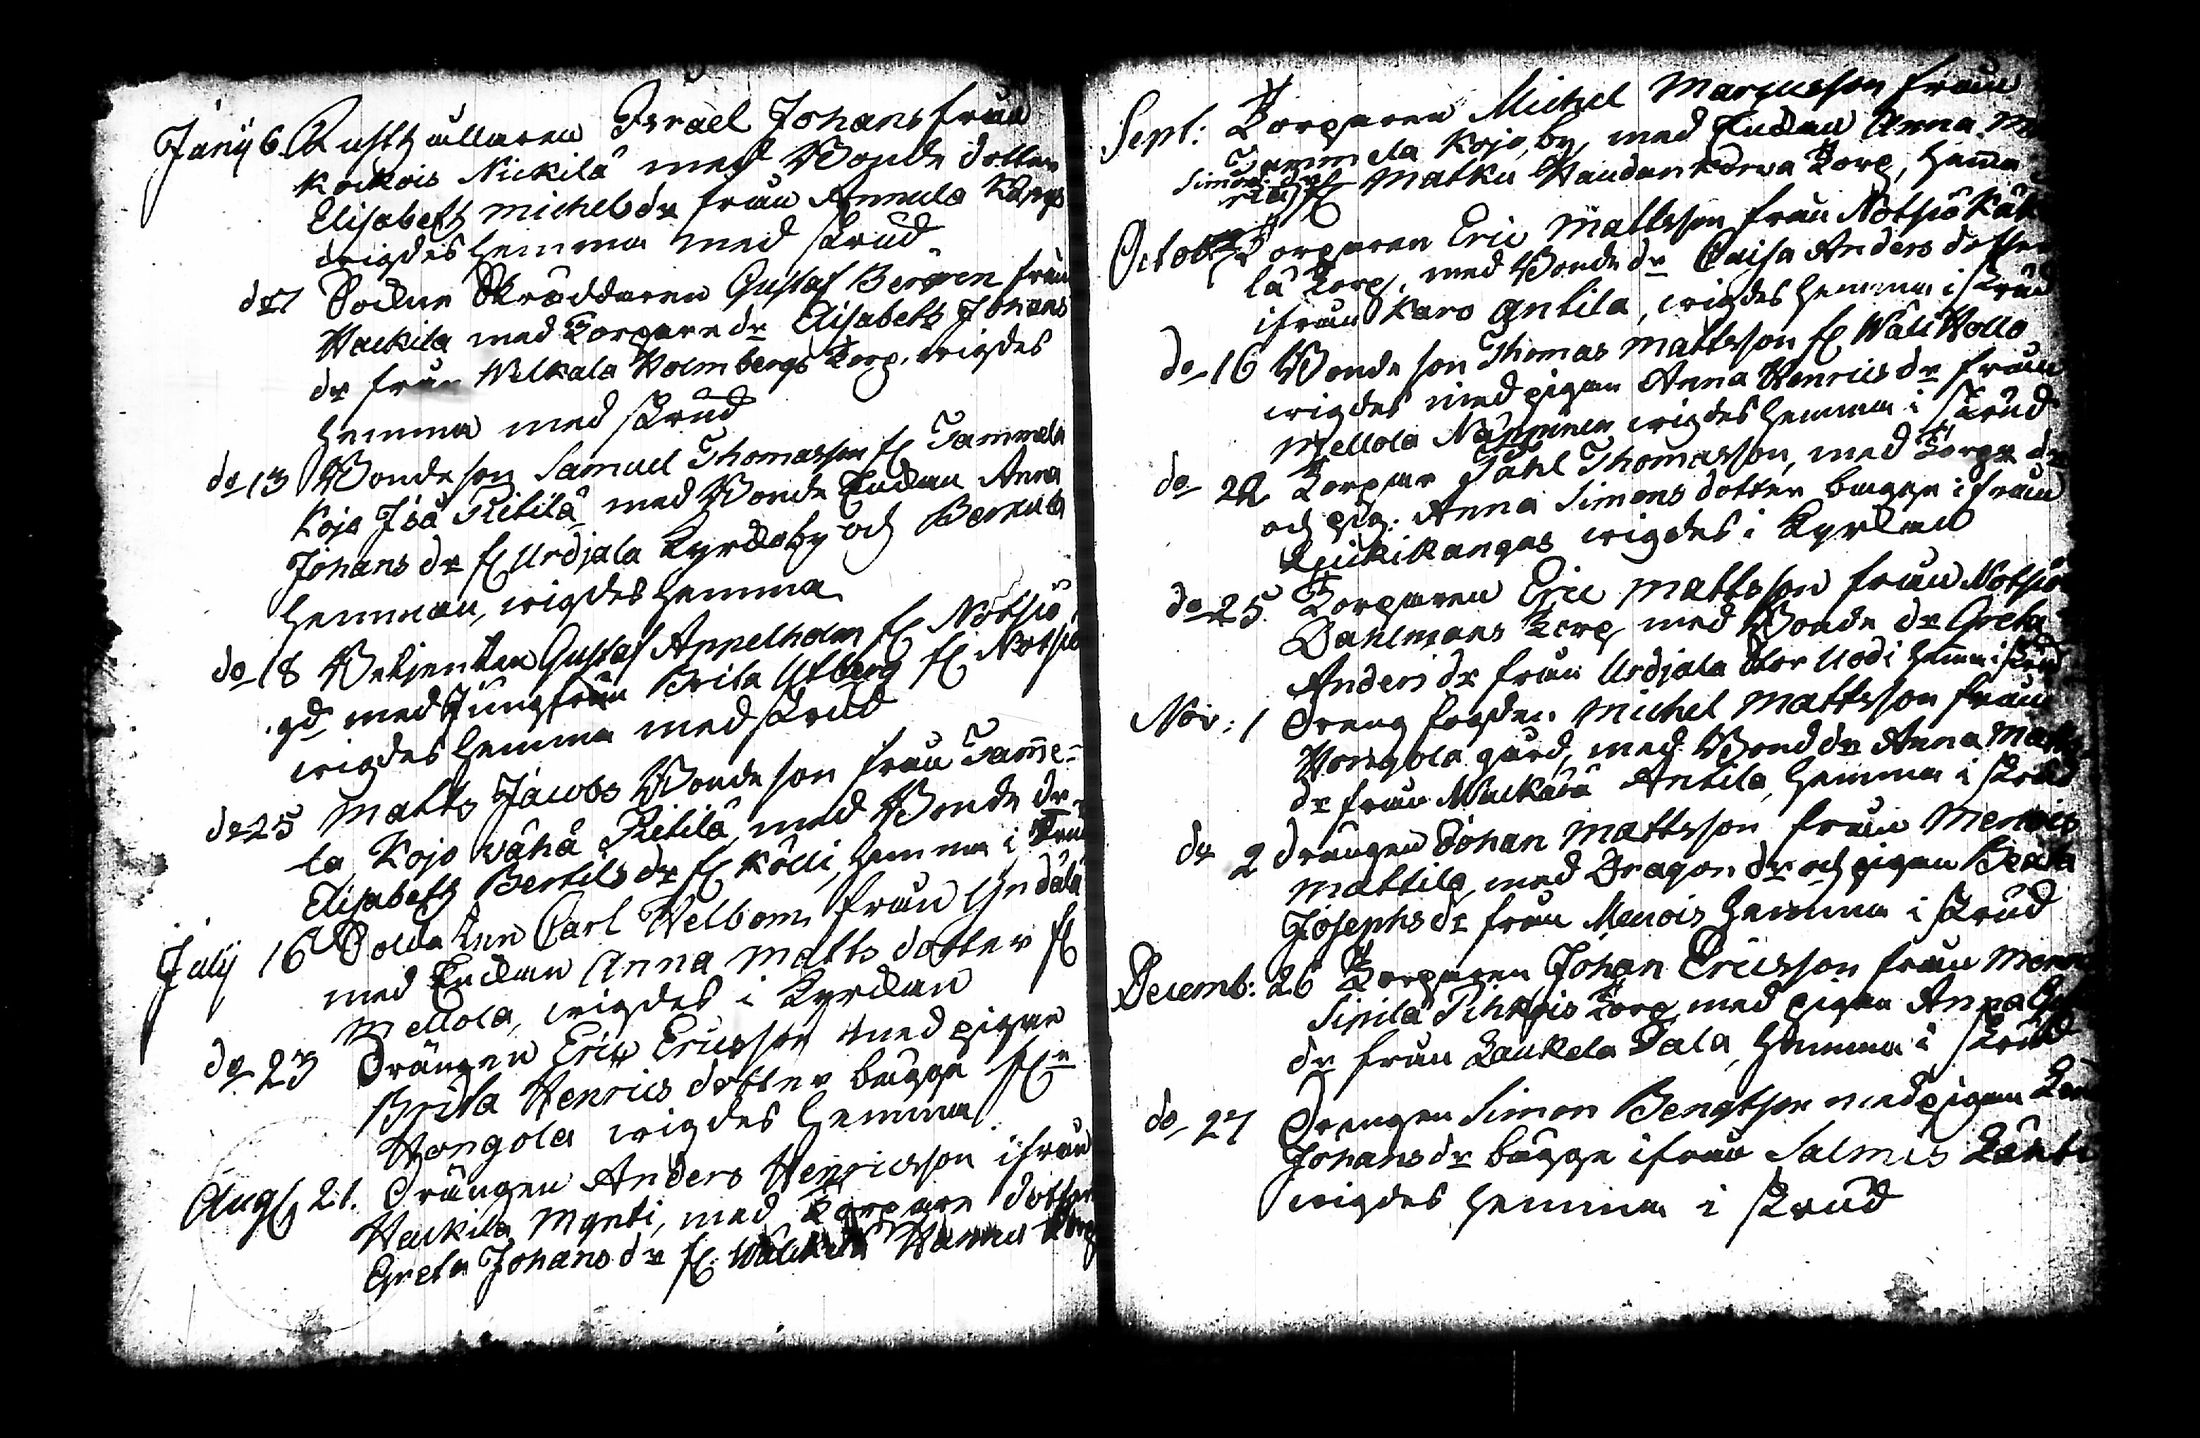 Junij 6 Rusthållaren Israel Johans från
Kockois Nickilä med Bonde dotter
Elisabeth Michelsdr från Annula
wigdes hemma med skrud
do 7 Sockne Skräddaren Gustaf Bergren från
Hackila med Torpare dr Elisabeth Johans
dr från Welkala Holmbergs Torp. wigdes
hemma med skrud
do 13 Bondeson Samuel Thomasson fr Tammela
Kojo Iså Ritilä med Bonde Enckan Anna
Johans dr fr Urdjala Kyrckoby och
hemman, wigdes hemma
do 18 Betjenten Gustaf Appelholm fr Notsiö
gd med Jungfrun Brita Utberg fr Notsiö
wigdes hemma med skrud
do 25 Matts Jacobs Bondeson från Tamme-
la Kojo wähä Ritilä med Bonde dr
Elisabeth Bertils dr fr Kölli, hemma i skrud
July 16 Soldaten Carl Welbom från
med Enckan Anna Matts dotter fr
Mellola, wigdes i Kyrckan
do 23 Drängen Eric Ericsson med pigan
Brita Henrics dotter bägge fr
Hongola wigdes hemma
Aug 21. Drängen Anders Henricsson ifrån
Hackila Mynti, med Torpare dotter
Greta Johans dr fr Torp
Sept: Torparen Michel Marcusson från
Tammela Kojo by, med Enckan Anna
Simons dr Matku Torp, hemma
Octob: Torparen Eric Mattsson från Notsiö
lä Torp, med Bonde dr Caisa Anders dotter
ifrån Karo Antila, wigdes hemma i skrud
do 16 Bonde son Thomas Mattsson fr Wäli Hollo
wigdes med pigan Anna Henrics dr från
Mellola wigdes hemma i skrud
do 22 Torpar Påhl Thomasson, med Torpr dr
och pig. Anna Simons dotter bägge ifrån
wigdes i Kyrckan
do 25 Torparen Eric Mattsson från Notsiö
Dahlmans Torp med Bonde dr Greta
Anders dr från Urdjala Stor Uodi hemma i skrud
Nov: 1 Dreng fogden Michel Mattsson från
Hongola gård, med Bond dr Anna Matts
dr från Antila, hemma i skrud
do 2 drängen Johan Mattsson från Menois
Mattila, med Dragon dr och pigan Beata
Josephs dr från Menois hemma i skrud
Decemb: 26 Torparen Johan Ericsson från
Sipilä Torp med pigan Anna
dr från Laukela Sala, hemma i skrud
do 27 Drengen Simon Bengtson med pigan
Johans dr bägge ifrån Salmis
wigdes hemma i skrud